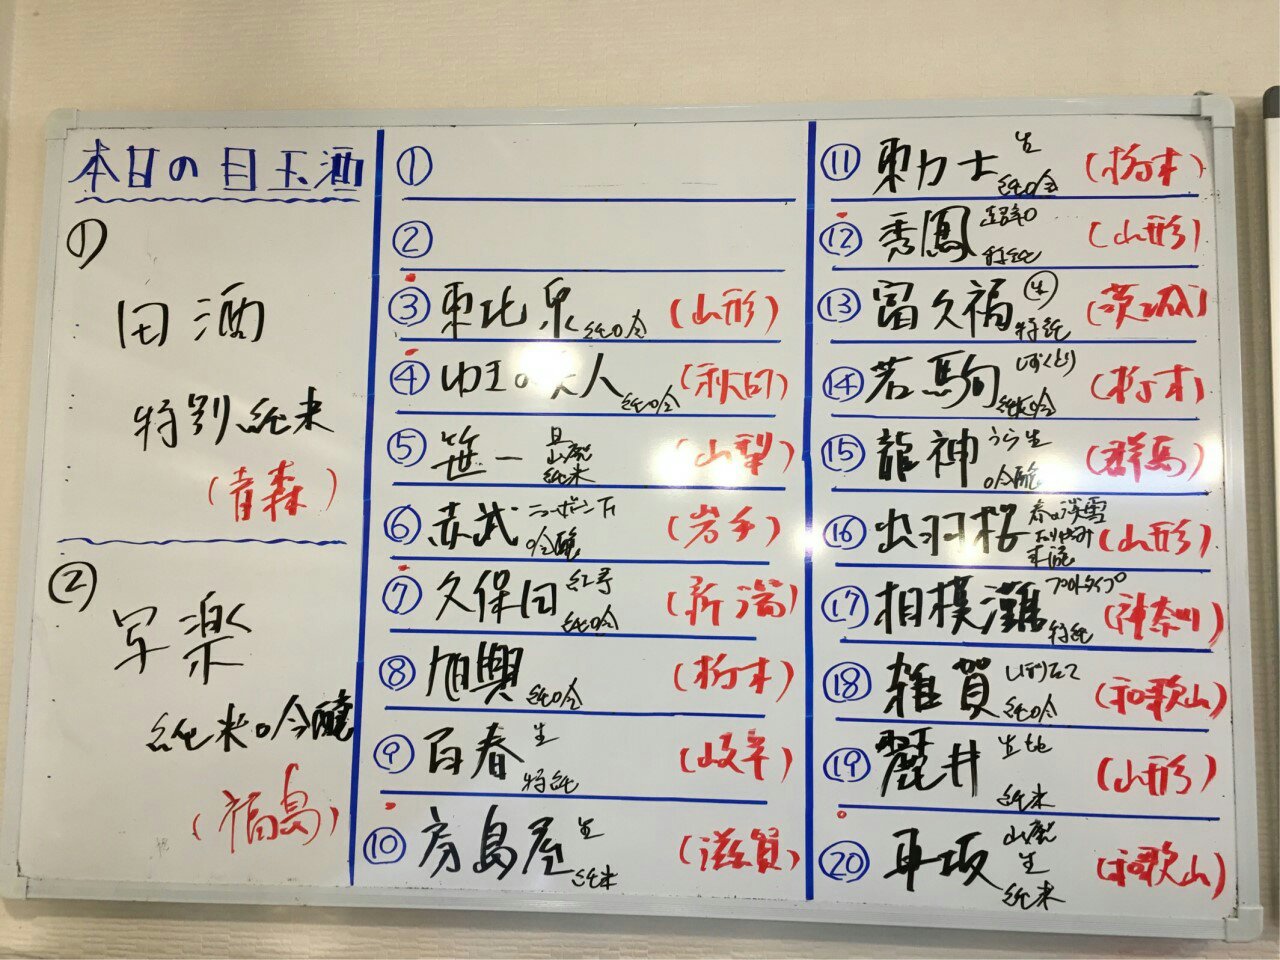 本日の目玉酒
①
田酒
特別純米
(青森)
②
写楽
純米吟醸
(福島)
①
②
③ 東北泉 純吟 (山形)
④ ゆきの美人 純吟 (秋田)
⑤ 笹一 旦 山廃 純米 (山梨)
⑥ 赤武 ニューボーン下 吟醸 (岩手)
⑦ 久保田 紅寿 純吟 (新潟)
⑧ 旭興 純吟 (栃木)
⑨ 百春 生 特純 (岐阜)
⑩ 房島屋 生 純米 (滋賀)
⑪ 東力士 生 純吟 (栃木)
⑫ 秀鳳 超辛口 特純 (山形)
⑬ 富久福 生 特純 (茨城)
⑭ 若駒 しずくとり 純米吟 (栃木)
⑮ 龍神 うら生 吟醸 (群馬)
⑯ 出羽桜 春の淡雪 (山形)
⑰ 相模灘 プロトタイプ 特純 (神奈川)
⑱ 雑賀 しぼりたて 純吟 (和歌山)
⑲ 麓井 生もと 純米 (山形)
⑳ 車坂 山廃 生 純米 (和歌山)